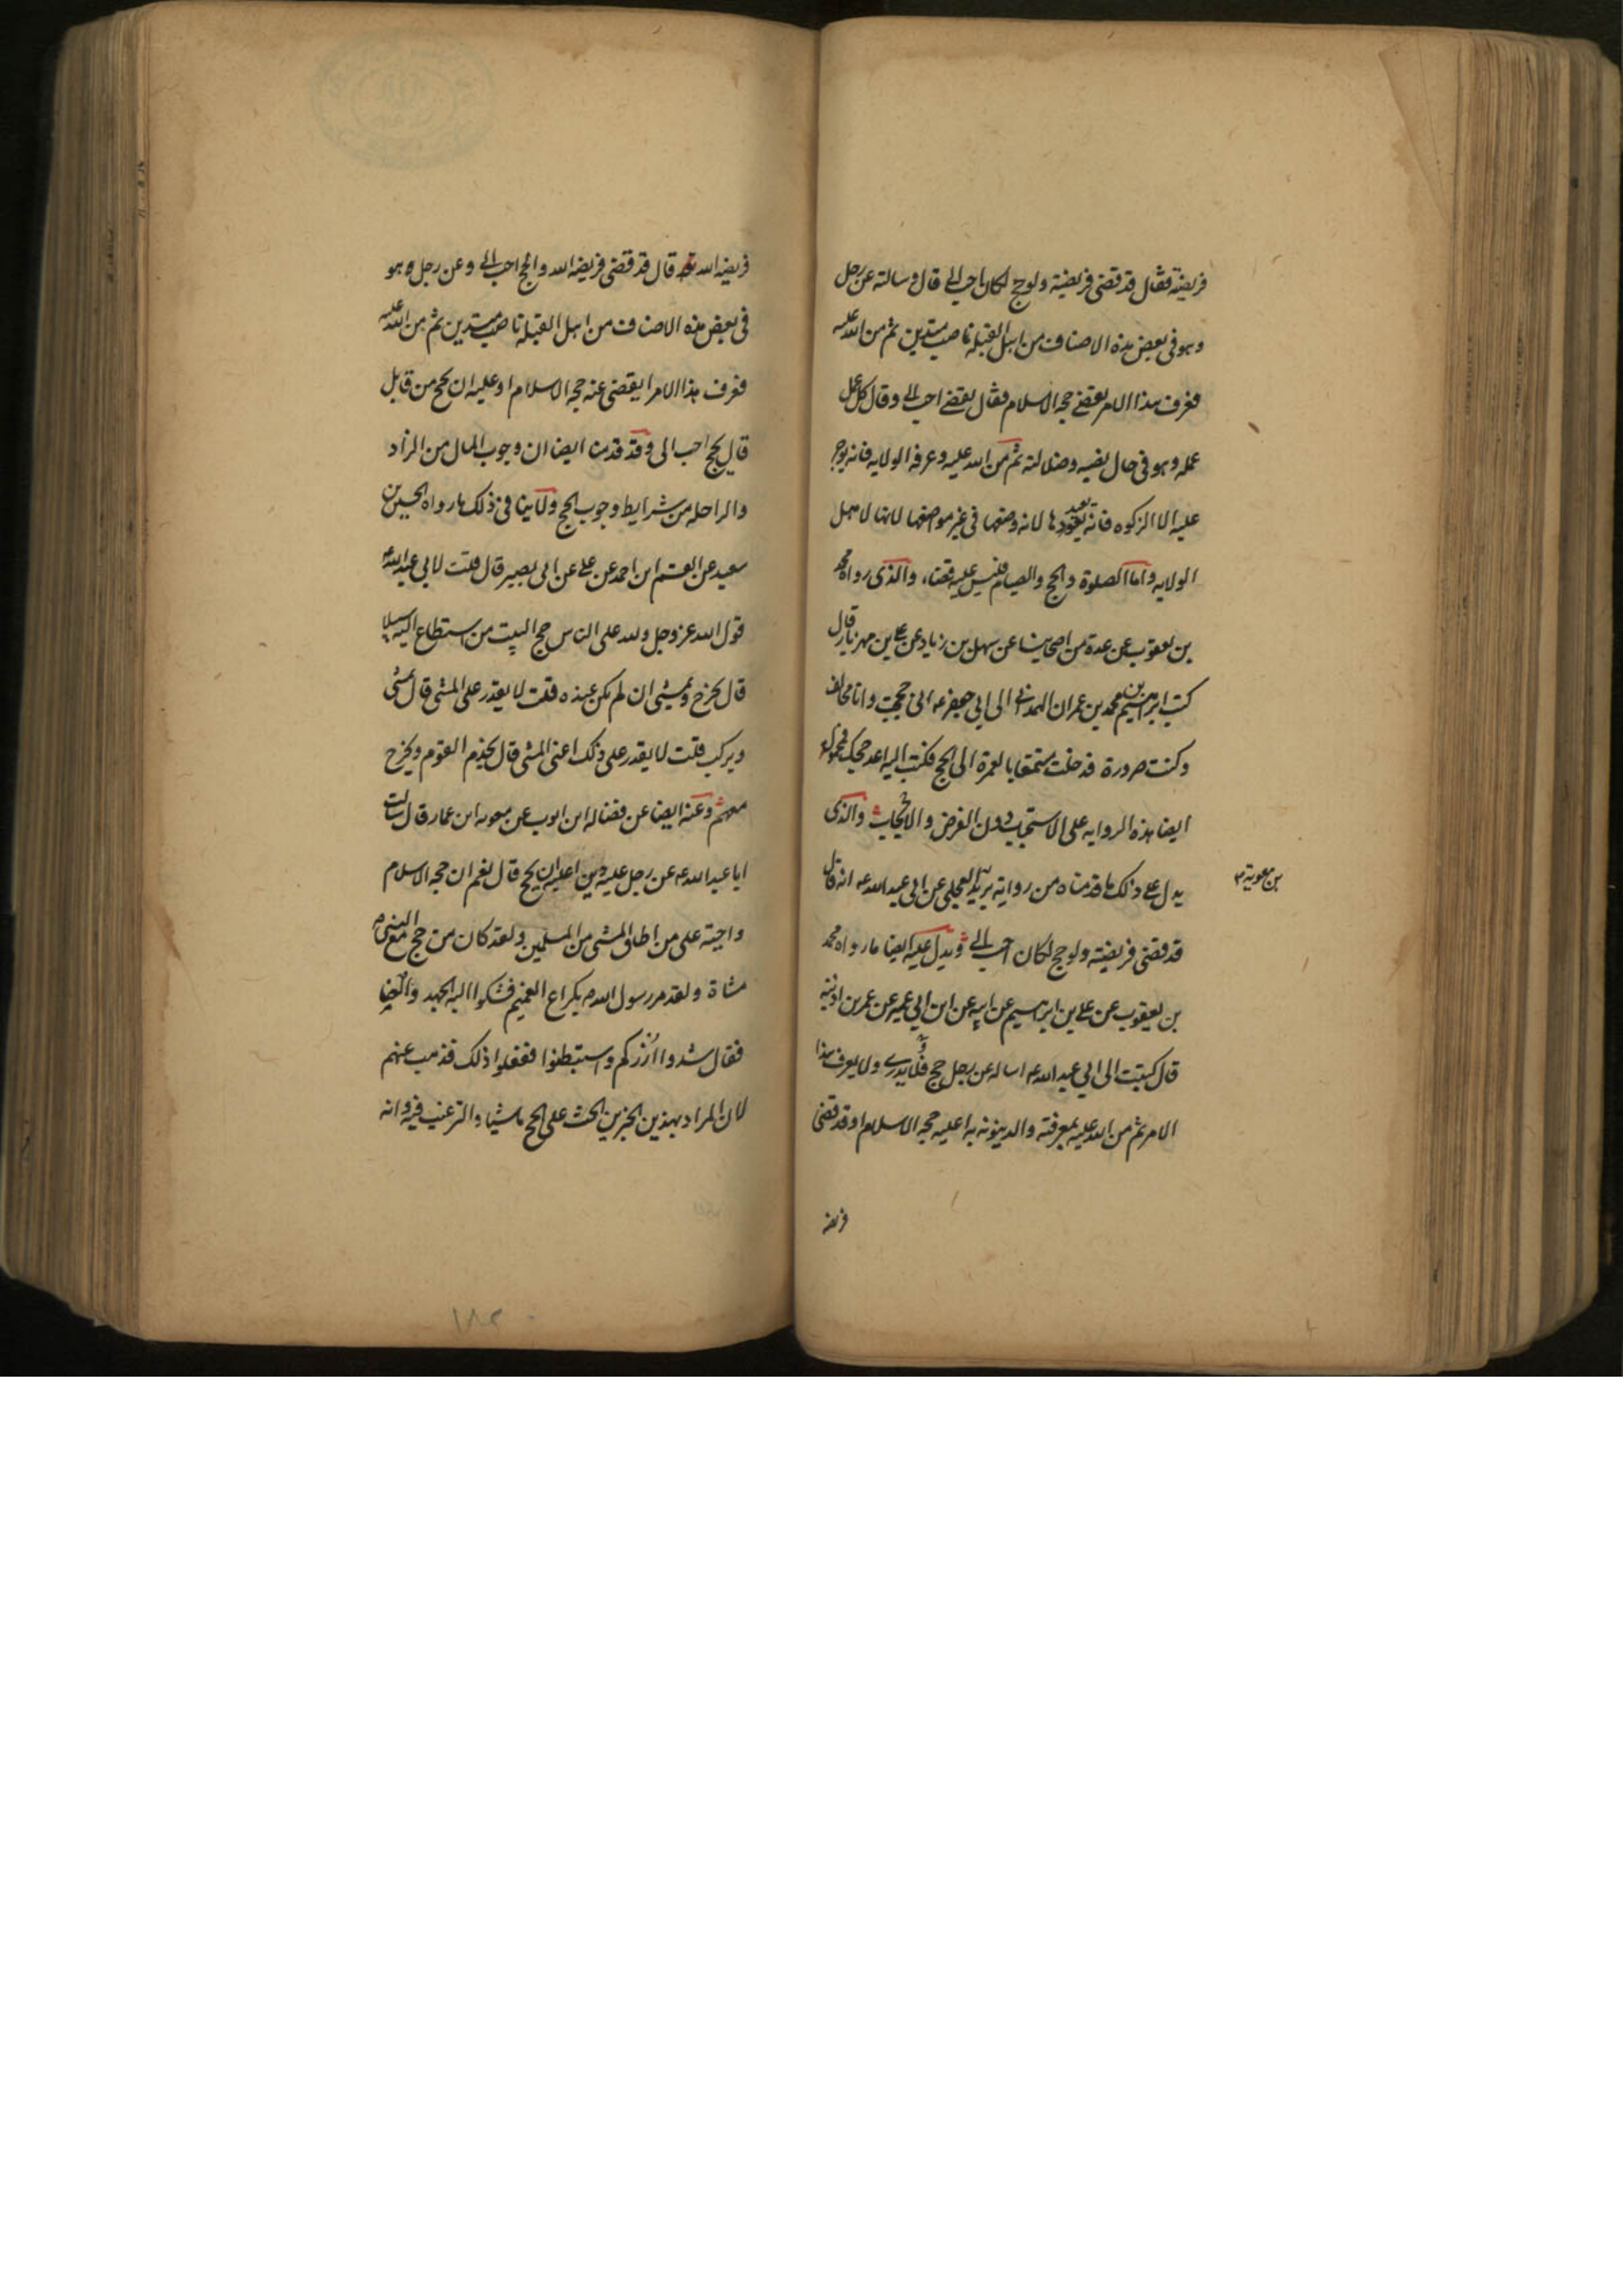 فريضته فقال قد قضى فريضته ولو حج لكان احب الي قال وسالته عن رجل
وهو في بعض هذه الاصناف من اهل القبلة ناصب متدين ثم من الله عليه
فعرف هذا الامر يقضي حجة الاسلام فقال يقضي احب الي وقال كل عمل
عمله وهو في حال نصبه وضلالته ثم من الله عليه وعرفه الولايه فانه يوجر
عليه الا الزكوه فانه يعيدها لانه وضعها في غير مواضعها لانها لاهل
الولايه واما الصلوة والحج والصيام فليس عليه قضاء والذي رواه محمد
بن يعقوب عن عدة من اصحابنا عن سهل بن زياد عن علي بن مهزيار قال
كتب ابرهيم بن محمد بن عمران الهمداني الى ابي جعفر عه اني حججت وانا مخالف
وكنت صرورة فدخلت متمتعا بالعمرة الى الحج فكتب اليه اعد حجك فمحمولة
ايضا هذه الروايه على الاستحباب دون الفرض والايجاب والذي
يدل على ذلك ما قدمناه من رواية بريد العجلي عن ابي عبد الله عه انه قال
بن معوية
قد قضى فريضته ولو حج لكان احب الي ويدل عليه ايضا ما رواه محمد
بن يعقوب عن علي بن ابرهيم عن ابيه عن ابن ابي عمير عن عمر بن اذينة
قال كتبت الى ابي عبد الله عه اساله عن رجل حج ولا يدري ولا يعرف هذا
الامر ثم من الله عليه بمعرفته والدينونه به اعليه حجة الاسلام او قد قضى
فريضه
فريضه الله قال قد قضى فريضه الله والحج احب الي وعن رجل وهو
في بعض هذه الاصناف من اهل القبله ناصب متدين ثم من الله عليه
فعرف هذا الامر ايقضى عنه حجه الاسلام او عليه ان يحج من قابل
قال يحج احب الى وقد قدمنا ايضا ان وجوب المال من الزاد
والراحله من شرايط وجوب الحج ولا ينافي ذلك ما رواه الحسين بن
سعيد عن القسم ابن احمد عن علي عن ابى بصير قال قلت لابي عبد الله عه
قول الله عز وجل ولله على الناس حج البيت من استطاع اليه سبيلا
قال يخرج ويمشى ان لم يكن عنده قلت لا يقدر على المشى قال يمشى
ويركب قلت لا يقدر على ذلك اعني المشى قال يخدم القوم ويخرج
معهم وعنه ايضا عن فضاله ابن ايوب عن معويه ابن عمار قال سالت
ابا عبد الله عه عن رجل عليه دين اعليه ان يحج قال نعم ان حجه الاسلام
واجبة على من اطاق المشى من المسلمين ولقد كان من حج مع النبي ص
مشاة ولقد مر رسول الله ص بكراع الغميم فشكوا اليه الجهد والعنا
فقال شدوا ازركم واستبطنوا ففعلوا ذلك فذهب عنهم
لان المراد بهذين الخبرين الحث على الحج ماشيا والترغيب فيه وانه